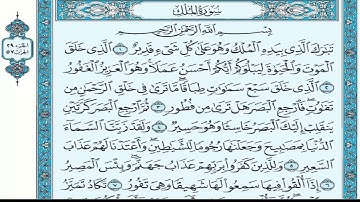 سُورَةُ المُلْكِ
بِسْمِ اللَّهِ الرَّحْمَٰنِ الرَّحِيمِ
تَبَارَكَ الَّذِي بِيَدِهِ الْمُلْكُ وَهُوَ عَلَىٰ كُلِّ شَيْءٍ قَدِيرٌ ١ الَّذِي خَلَقَ
الْمَوْتَ وَالْحَيَاةَ لِيَبْلُوَكُمْ أَيُّكُمْ أَحْسَنُ عَمَلًا وَهُوَ الْعَزِيزُ الْغَفُورُ
٢ الَّذِي خَلَقَ سَبْعَ سَمَاوَاتٍ طِبَاقًا مَا تَرَىٰ فِي خَلْقِ الرَّحْمَٰنِ مِن
تَفَاوُتٍ فَارْجِعِ الْبَصَرَ هَلْ تَرَىٰ مِن فُطُورٍ ٣ ثُمَّ ارْجِعِ الْبَصَرَ كَرَّتَيْنِ
يَنقَلِبْ إِلَيْكَ الْبَصَرُ خَاسِئًا وَهُوَ حَسِيرٌ ٤ وَلَقَدْ زَيَّنَّا السَّمَاءَ
الدُّنْيَا بِمَصَابِيحَ وَجَعَلْنَاهَا رُجُومًا لِلشَّيَاطِينِ وَأَعْتَدْنَا لَهُمْ عَذَابَ
السَّعِيرِ ٥ وَلِلَّذِينَ كَفَرُوا بِرَبِّهِمْ عَذَابُ جَهَنَّمَ وَبِئْسَ الْمَصِيرُ
٦ إِذَا أُلْقُوا فِيهَا سَمِعُوا لَهَا شَهِيقًا وَهِيَ تَفُورُ ٧ تَكَادُ تَمَيَّزُ